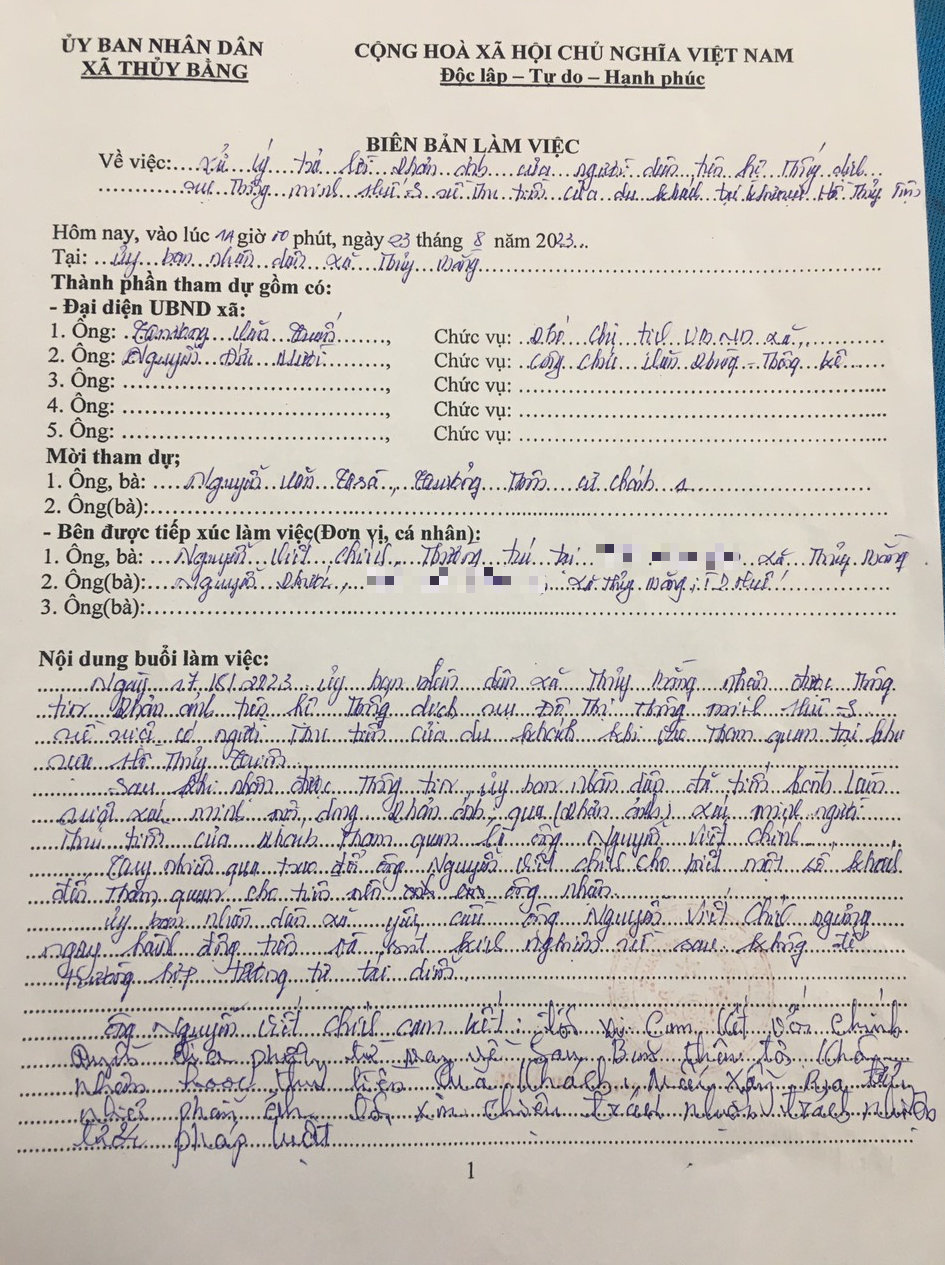 ỦY BAN NHÂN DÂN
XÃ THỦY BẰNG
CỘNG HOÀ XÃ HỘI CHỦ NGHĨA VIỆT NAM
Độc lập – Tự do – Hạnh phúc
BIÊN BẢN LÀM VIỆC
Về việc: xử lý trả lời phản ánh của người dân trên hệ thống dịch
vụ thông minh Huế-S về thu tiền của du khách tại Hồ Thủy Tiên
Hôm nay, vào lúc 14 giờ 00 phút, ngày 23 tháng 8 năm 2023
Tại: Ủy ban nhân dân xã Thủy Bằng
Thành phần tham dự gồm có:
- Đại diện UBND xã:
1. Ông: Văn, Chức vụ: Phó chủ tịch UBND xã
2. Ông: Nguyễn, Chức vụ: Công chức Văn phòng - Thống kê
3. Ông:, Chức vụ:
4. Ông:, Chức vụ:
5. Ông:, Chức vụ:
Mời tham dự;
1. Ông, bà: Nguyễn Văn, Trưởng thôn cư chánh 1
2. Ông(bà):
- Bên được tiếp xúc làm việc(Đơn vị, cá nhân):
1. Ông, bà: Nguyễn Viết Chinh, Thường trú tại xã Thủy Bằng
2. Ông(bà): Nguyễn, xã Thủy Bằng, TP Huế
3. Ông(bà):
Nội dung buổi làm việc:
Ngày 17/8/2023 ủy ban nhân dân xã Thủy Bằng nhận được thông
tin phản ánh trên hệ thống dịch vụ Đô Thị Thông minh Huế-S
về việc có người thu tiền của du khách khi vào tham quan tại khu
vực Hồ Thủy Tiên
Sau khi nhận được thông tin, ủy ban nhân dân đã tiến hành làm
việc xác minh nội dung phản ánh, qua (phản ánh) xác minh người
thu tiền của khách tham quan là ông Nguyễn Viết Chinh
Tuy nhiên qua trao đổi ông Nguyễn Viết Chinh cho biết một số khách
đến tham quan cho tiền nên ông nhận
Ủy ban nhân dân xã yêu cầu ông Nguyễn Viết Chinh ngừng
ngay hành động trên và rút kinh nghiệm về sau không để
trường hợp tương tự tái diễn
Ông Nguyễn Viết Chinh cam kết: Tôi Cam kết với Chính
quyền địa phương từ nay về sau Bản thân tôi không
nhận hoặc thu tiền của khách, nếu xảy ra
phản ánh tôi xin chịu trách nhiệm trách nhiệm
trước pháp luật
1